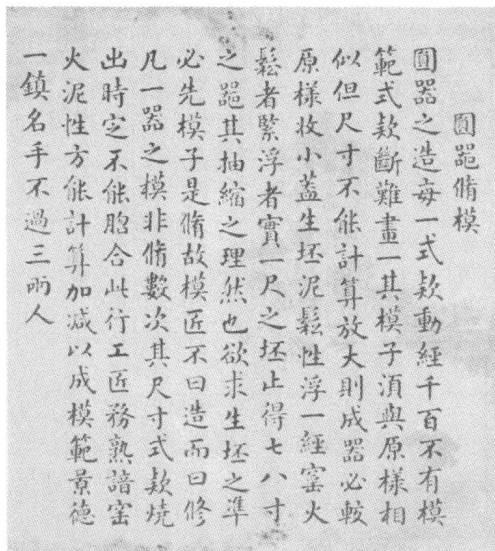 圓器脩模
圓器之造每一式款動經千百不有模
範式款斷難畫一其模子須與原樣相
似但尺寸不能計算放大則成器必較
原樣收小蓋生坯泥鬆性浮一經窰火
鬆者緊浮者實一尺之坯止得七八寸
之器其抽縮之理然也欲求生坯之準
必先模子是脩故模匠不曰造而曰修
凡一器之模非脩數次其尺寸式款燒
出時定不能脗合此行工匠務熟諳窑
火泥性方能計算加减以成模範景德
一鎮名手不過三兩人